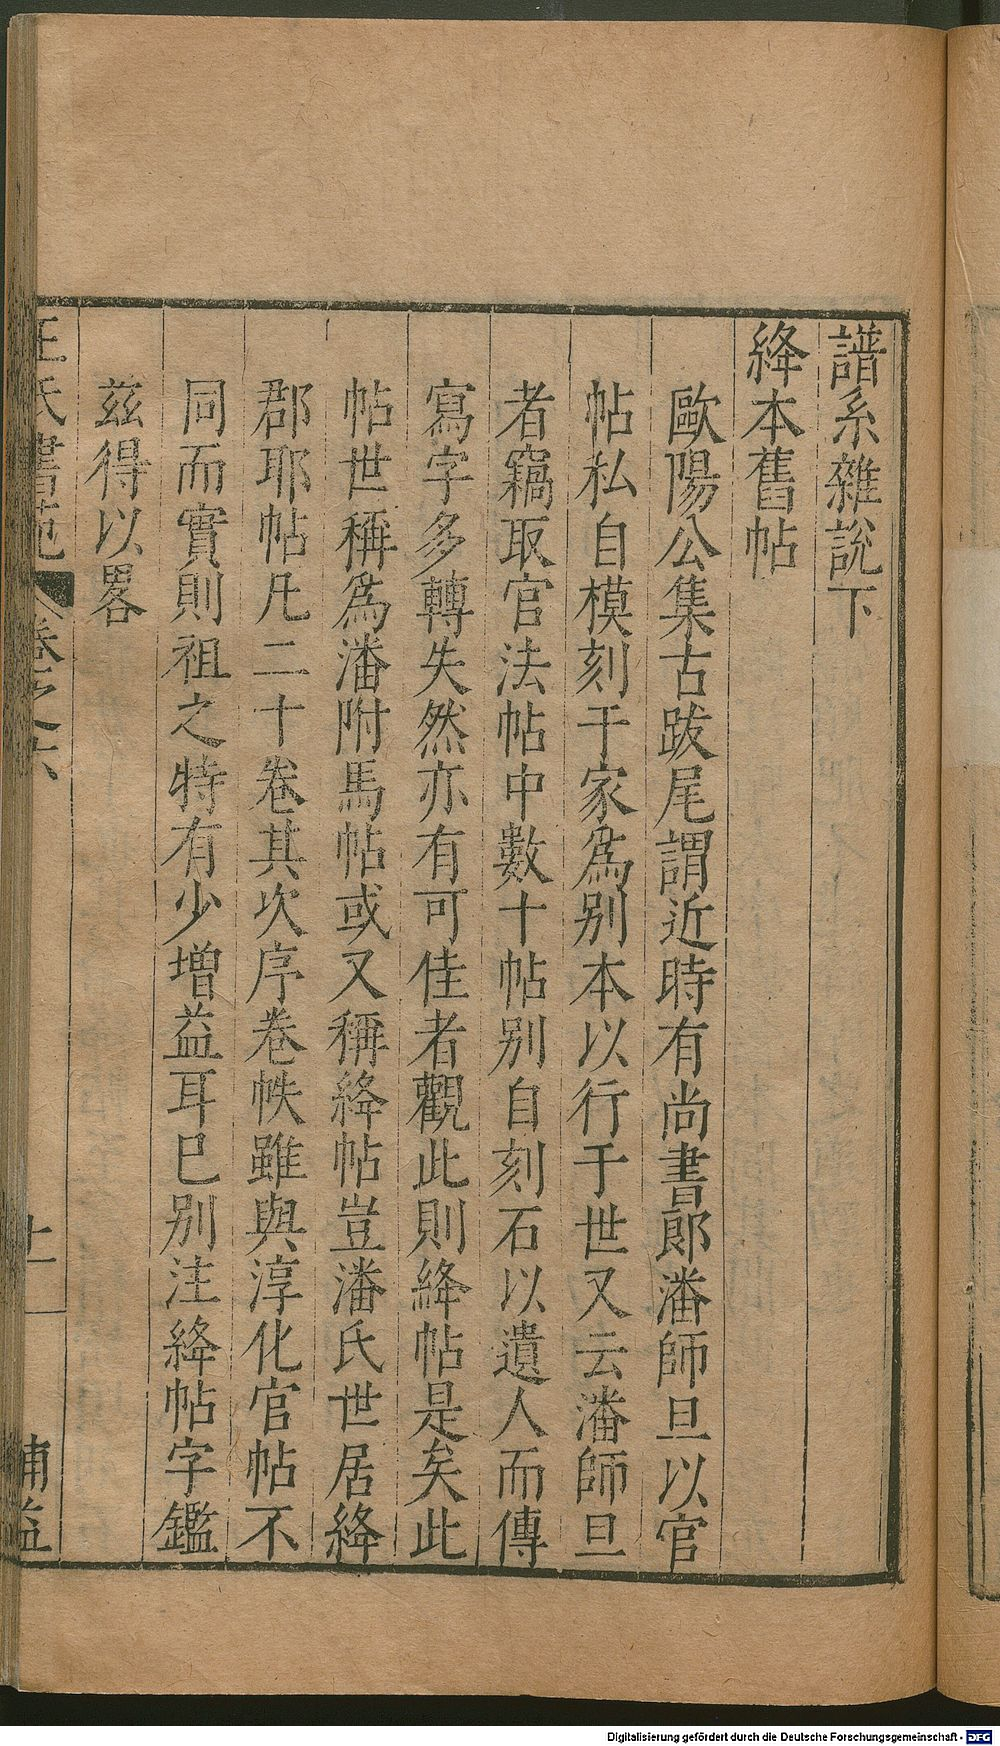 譜系雜說下
絳本舊帖
歐陽公集古跋尾謂近時有尚書郞潘師旦以官
帖私自模刻于家爲别本以行于世又云潘師旦
者竊取官法帖中數十帖别自刻石以遺人而傳
寫字多轉失然亦有可佳者觀此則絳帖是矣此
帖世稱爲潘附馬帖或又稱絳帖豈潘氏世居絳
郡耶帖凡二十卷其次序卷帙雖與淳化官帖不
同而實則祖之特有少增益耳巳别注絳帖字鑑
兹得以畧
王氏書苑 卷之六
Digitalisierung gefördert durch die Deutsche Forschungsgemeinschaft - DFG